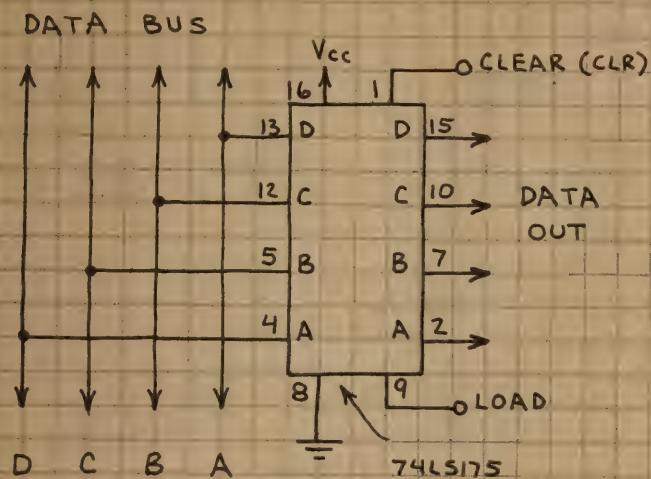 DATA BUS
Vcc
CLEAR (CLR)
16 1
13 D D 15
12 C C 10 DATA
OUT
5 B B 7
4 A A 2
8 9
LOAD
D C B A
74LS175